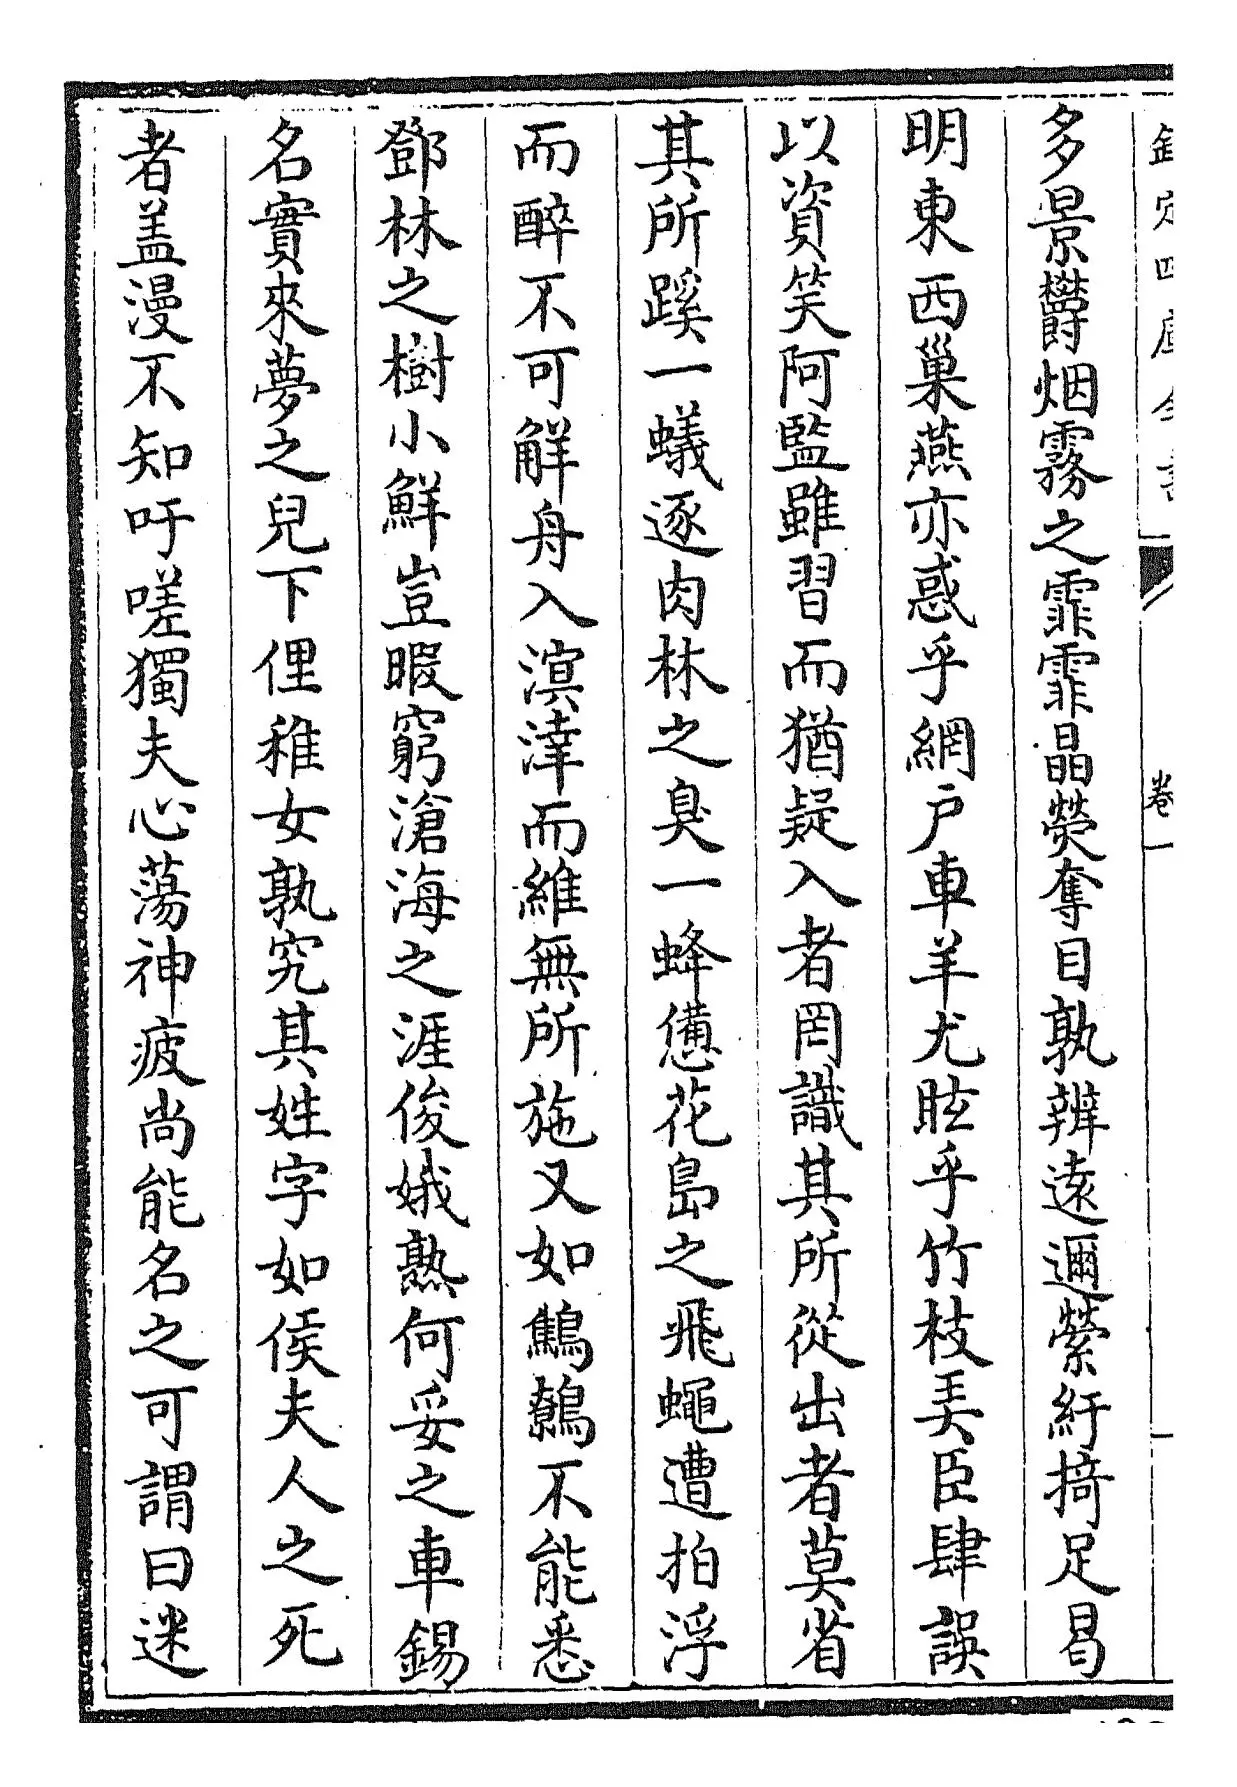 欽定四庫全書
卷一
多景欝烟霧之霏霏晶熒奪目孰辨遠邇縈紆掎足曷
明東西巢燕亦惑乎網户車羊尤眩乎竹枝美臣肆誤
以資笑阿監雖習而猶疑入者罔識其所從出者莫省
其所蹊一蟻逐肉林之臭一蜂憊花島之飛蠅遭拍浮
而醉不可解舟入溟涬而維無所施又如鷦鷯不能悉
鄧林之樹小鮮豈暇窮滄海之涯俊娥熟何妥之車錫
名實來夢之兒下俚稚女孰究其姓字如侯夫人之死
者盖漫不知吁嗟獨夫心蕩神疲尚能名之可謂曰迷